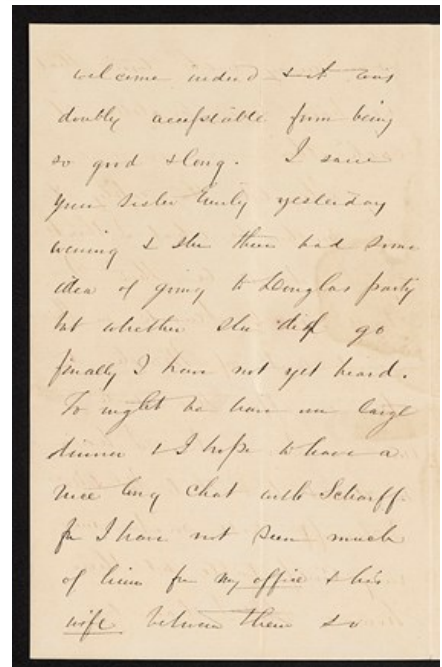 welcome indeed & it was
doubly acceptable from being
so good & long. I saw
your sister Emily yesterday
evening & she then had some
idea of going to Douglas party
but whether she did go
finally I have not yet heard.
To night we have our large
dinner & I hope to have a
nice long chat with Scharff
for I have not seen much
of him for my office & his
wife between them so